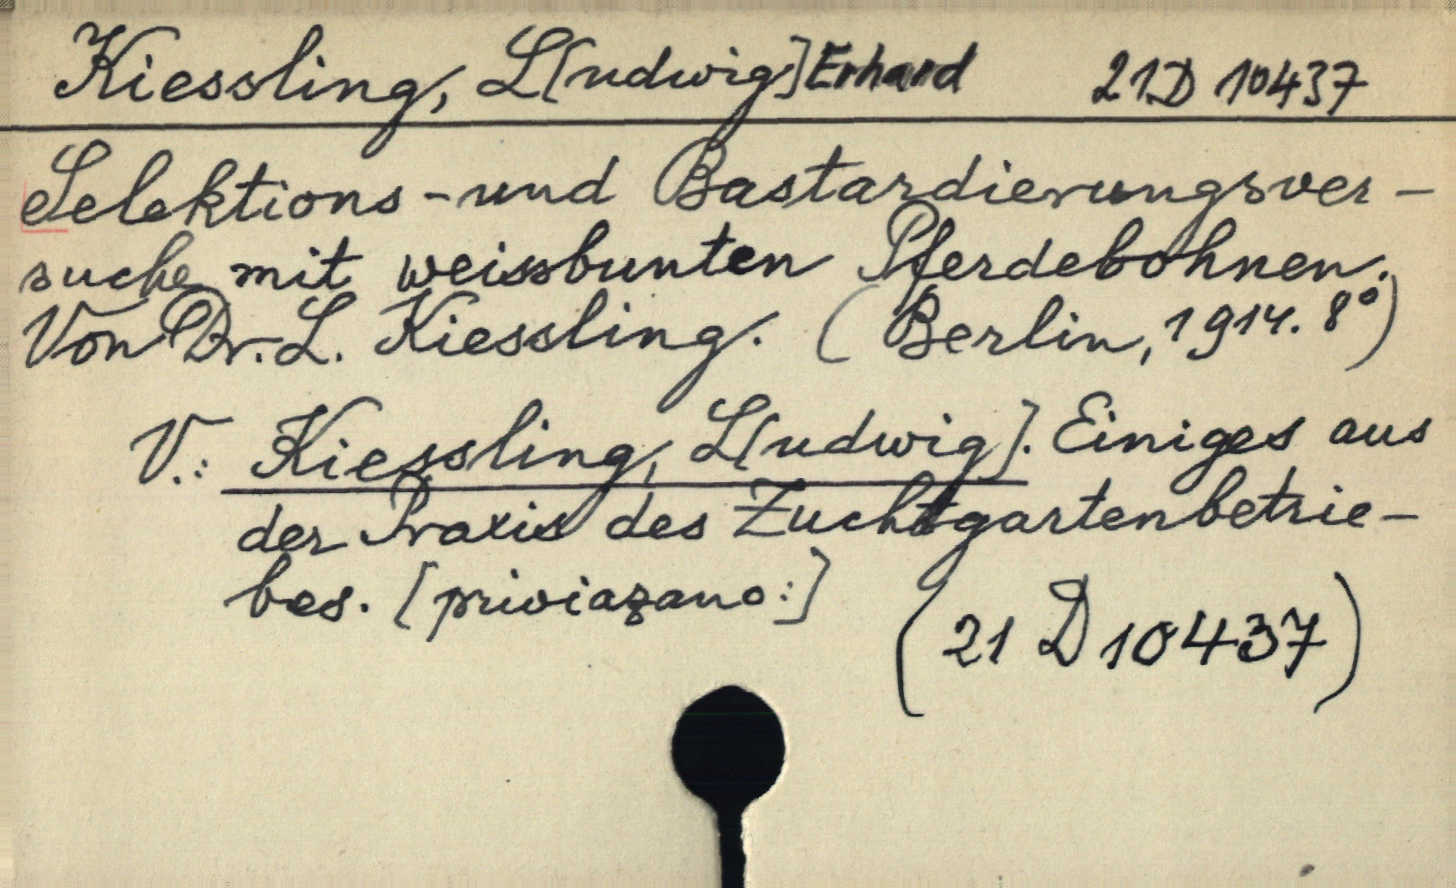 Kiessling, L[udwig] Erhard 21 D 10437
Selektions- und Bastardierungsver-
suche mit weissbunten Pferdebohnen.
Von Dr. L. Kiessling. (Berlin, 1914. 8°)
V.: Kiessling, L[udwig]. Einiges aus
der Praxis des Zuchtgartenbetrie-
bes. [priviazano:]
(21 D 10437)